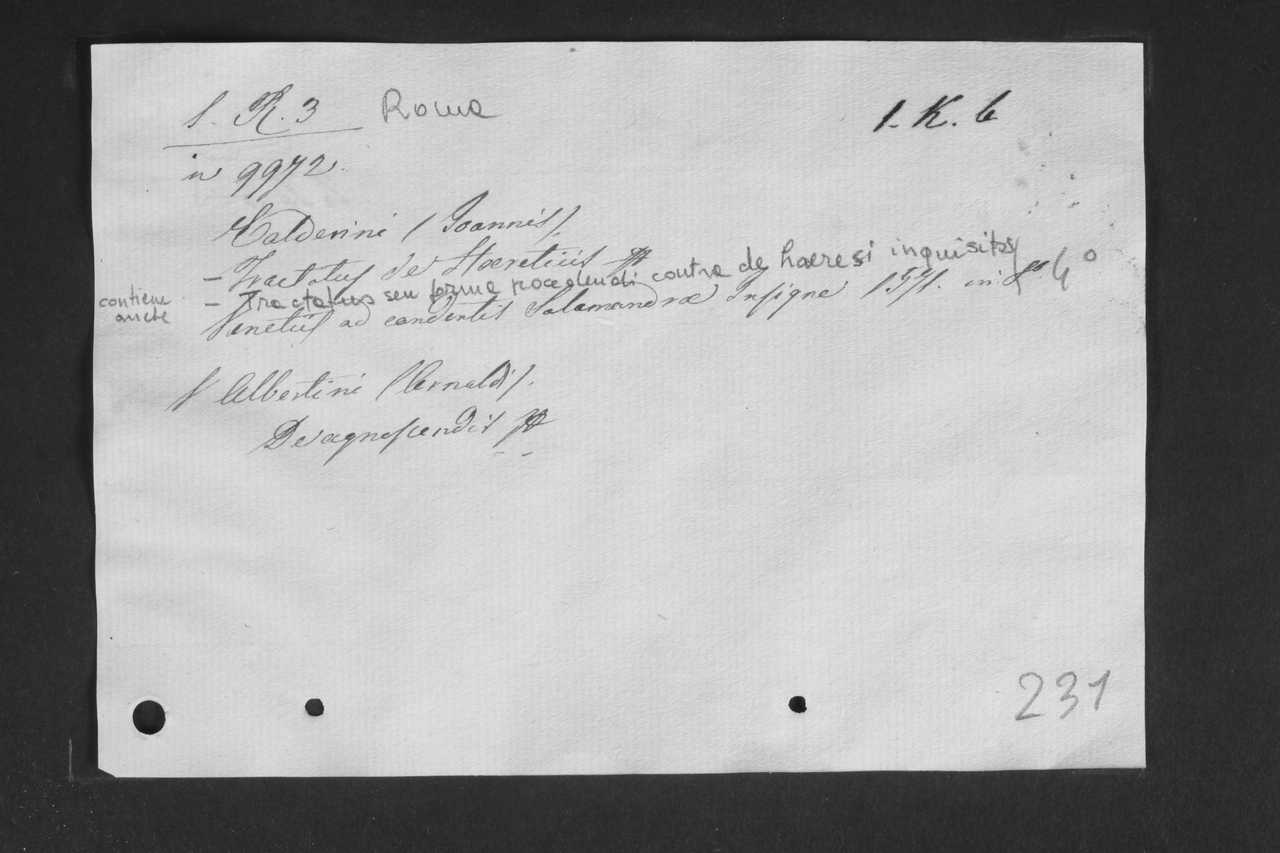 1. R. 3 Roma
1. K. 6
in 9972.
Calderini (Joannis).
- Tractatus de Haereticis
contiene anche
- Tractatus seu forma procedendi contra de haeresi inquisitos
Venetiis ad candentis Salamandrae Insigne 1571. in 4°
Albertini (Arnaldi).
De agnoscendis
231